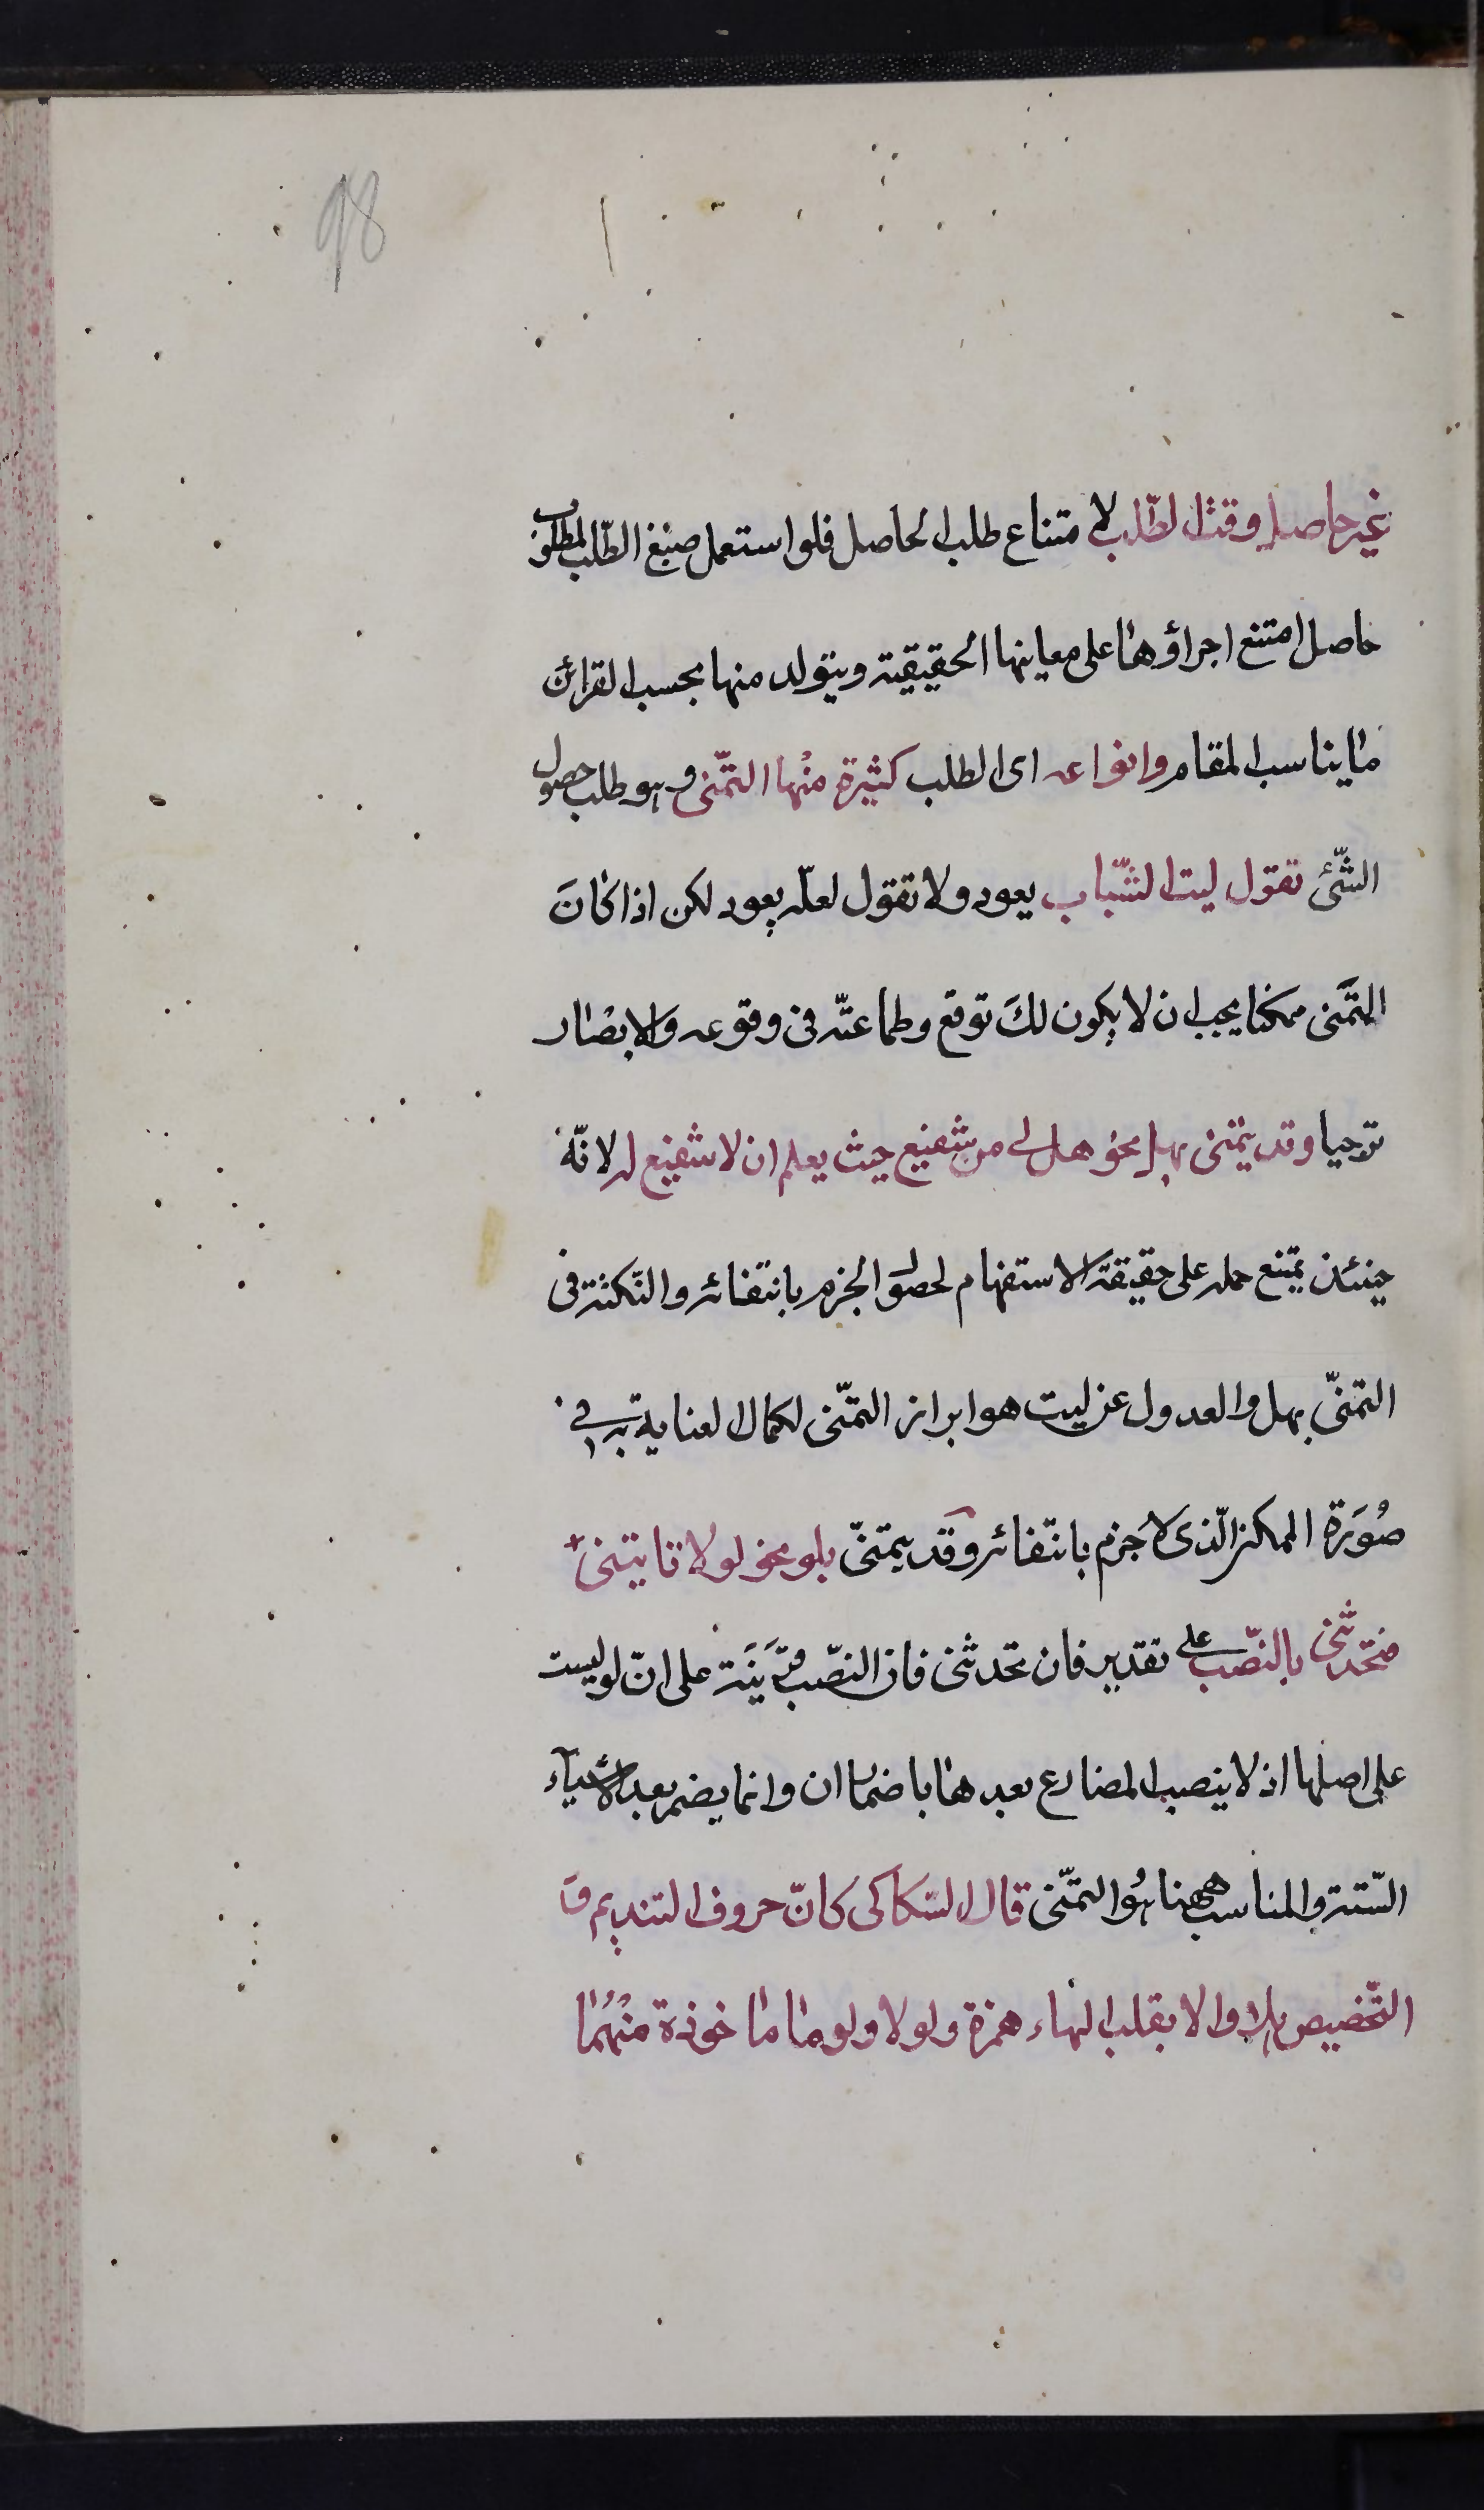 98
غير حاصل وقت الطّلب لامتناع طلب الحاصل فلو استعمل صيغ الطّلب لمطلوب
حاصل امتنع اجراؤها على معانيها الحقيقية ويتولد منها بحسب القرائن
ما يناسب المقام وانواعه اى الطلب كثيرة منها التمّنى وهو طلب حصول
الشّئ تقول ليت الشّباب يعود ولا تقول لعلّه يعود لكن اذا كانَ
التمَّنى ممكنا يجب ان لا يكون لكَ توقع وطماعيّة فى وقوعه والا يصار
ترجيا وقد يتمنى بهل نحو هل لى من شفيع حيث يعلم ان لا شفيع له لانّه
حينئذ يمتنع حمله على حقيقة الاستفهام لحصول الجزم بانتفائه والنّكتة فى
التمنىّ بهل والعدول عن ليت هو ابراز التمّنى لكمال العناية به فى
صُورَة الممكن الّذى لا جزم بانتفائه وقد يتمنىّ بلو نحو لو لا تاتيتنى
فتحدّثنى بالنّصب على تقدير فان تحدثنى فان النصّب قرَينَة على انّ لو ليست
على اصلها اذ لا ينصب المضارع بعدها باضمار ان وانما يضمر بعد الاشيآء
السّتة والمناسب ههنا هُو التمّنى قال السّكاكى كانّ حروف التنديم وَ
التّخضيص هلا والا بقلب الهاء همزة ولولا ولوما ماخوذة منْهُمٰا